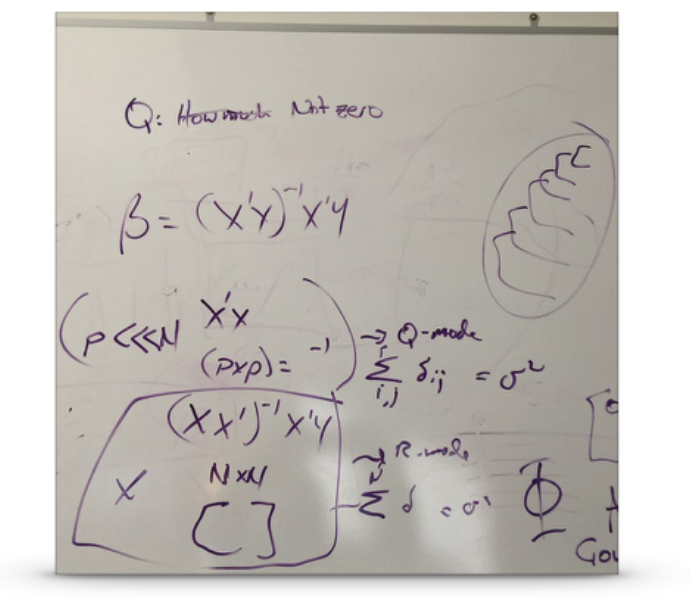 Q: How much Not zero
β = (X'X)⁻¹X'Y
(P <<< N X'X
(p×p) = ⁻¹) → Q-mode
Σ i,j δij = σ²
(XX')⁻¹X'Y
→ R-mode
X N×N
[ ] Σ δ = σ² Φ
Gou